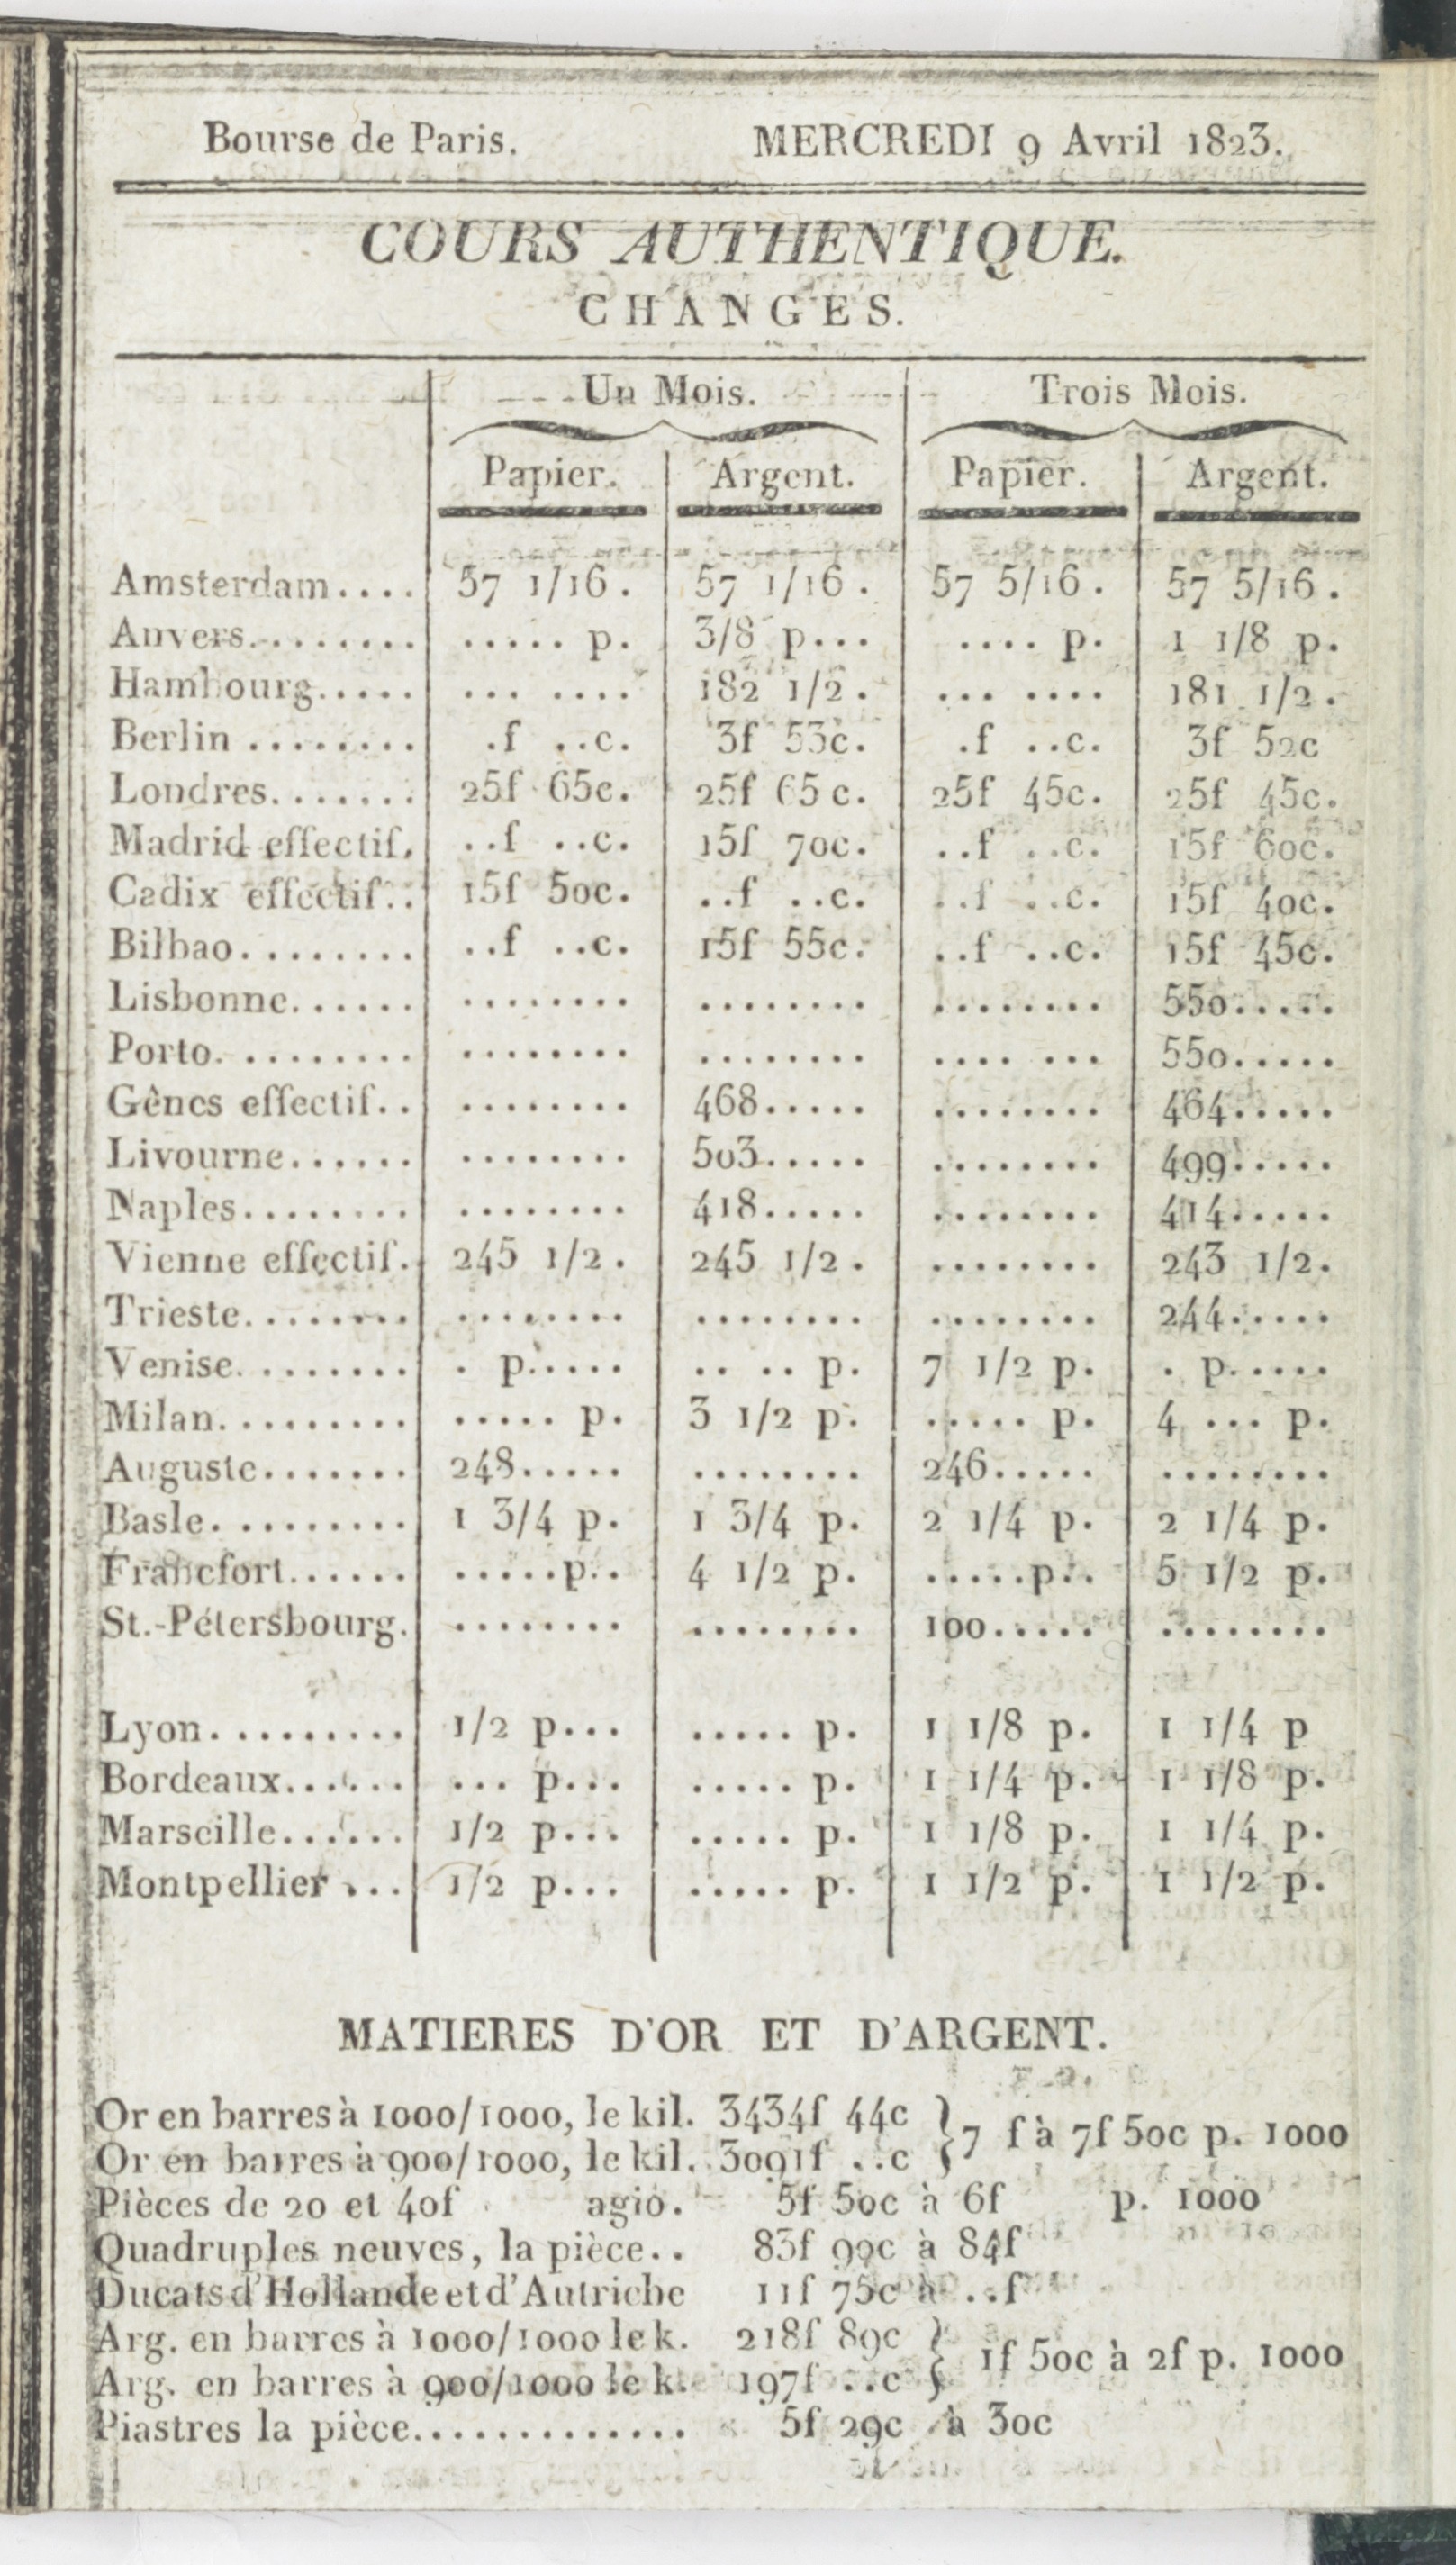 Bourse de Paris. MERCREDI 9 Avril 1823.
COURS AUTHENTIQUE.
CHANGES.
Un Mois. Trois Mois.
Papier. Argent. Papier. Argent.
Amsterdam.... 57 1/16. 57 1/16. 57 5/16. 57 5/16.
Anvers......... ..... p. 3/8 p... .... p. 1 1/8 p.
Hambourg..... ... .... 182 1/2. ... .... 181 1/2.
Berlin ........ .f ..c. 3f 53c. .f ..c. 3f 52c
Londres....... 25f 65c. 25f 65c. 25f 45c. 25f 45c.
Madrid effectif. ..f ..c. 15f 70c. ..f ..c. 15f 60c.
Cadix effectif.. 15f 50c. ..f ..c. ..f ..c. 15f 40c.
Bilbao........ ..f ..c. 15f 55c. ..f ..c. 15f 45c.
Lisbonne...... ........ ........ ........ 550.....
Porto. ........ ........ ........ .... ... 550.....
Gênes effectif.. ........ 468..... ........ 464.....
Livourne...... ........ 503..... ........ 499.....
Naples........ ........ 418..... ........ 414.....
Vienne effectif. 245 1/2. 245 1/2. ........ 243 1/2.
Trieste........ ........ ........ ........ 244.....
Venise. ....... . p..... .. .. p. 7 1/2 p. . p.....
Milan. ........ ..... p. 3 1/2 p. ..... p. 4 ... p.
Auguste....... 248..... ........ 246..... ........
Basle. ........ 1 3/4 p. 1 3/4 p. 2 1/4 p. 2 1/4 p.
Francfort...... .....p.. 4 1/2 p. .....p.. 5 1/2 p.
St.-Pétersbourg. ........ ........ 100..... ........
Lyon. ........ 1/2 p... ..... p. 1 1/8 p. 1 1/4 p
Bordeaux...... ... p... ..... p. 1 1/4 p. 1 1/8 p.
Marseille...... 1/2 p... ..... p. 1 1/8 p. 1 1/4 p.
Montpellier ... 1/2 p... ..... p. 1 1/2 p. 1 1/2 p.
MATIERES D'OR ET D'ARGENT.
Or en barres à 1000/1000, le kil. 3434f 44c } 7 f à 7f 50c p. 1000
Or en barres à 900/1000, le kil. 3091f ..c }
Pièces de 20 et 40f agio. 5f 50c à 6f p. 1000
Quadruples neuves, la pièce.. 83f 90c à 84f
Ducats d'Hollande et d'Autriche 11f 75c à ..f
Arg. en barres à 1000/1000 le k. 218f 89c } 1f 50c à 2f p. 1000
Arg. en barres à 900/1000 le k. 197f ..c }
Piastres la pièce............. 5f 29c à 30c